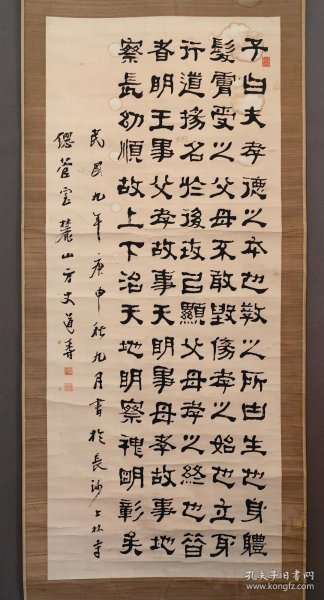 子曰夫孝德之本也教之所由生也身體
髮膚受之父母不敢毀傷孝之始也立身
行道揚名於後世以顯父母孝之終也昔
者明王事父孝故事天明事母孝故事地
察長幼順故上下治天地明察神明彰矣
民國九年庚申秋九月書於長沙上林寺
室麓山方丈道香
孔夫子旧书网